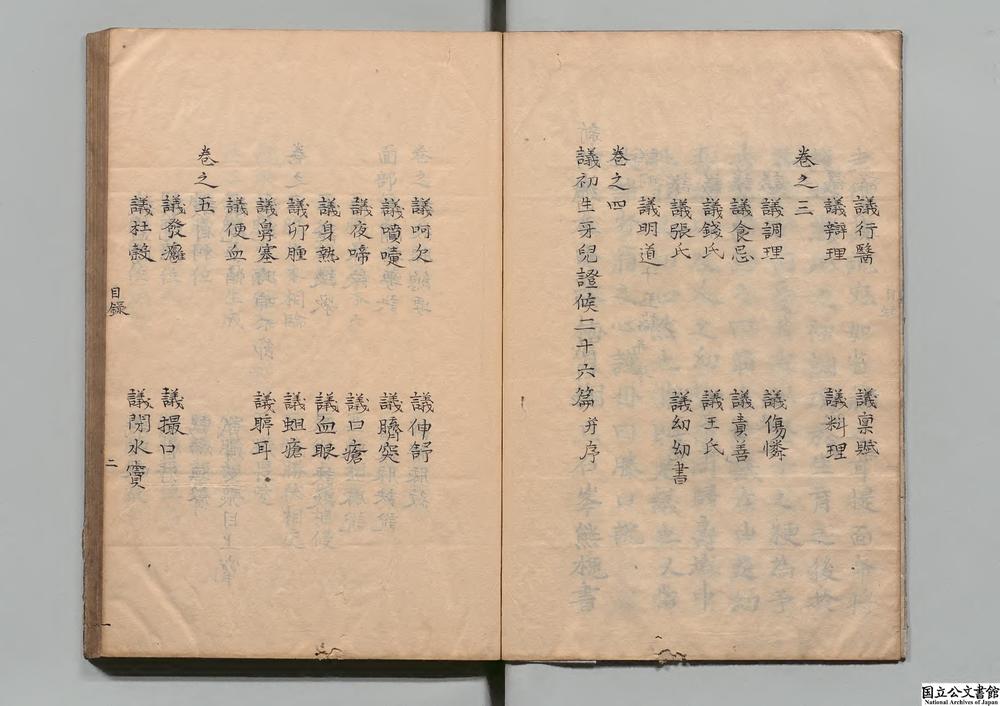 議行醫 議稟賦
議辯理 議料理
卷之三
議調理 議傷憐
議食忌 議責善
議錢氏 議王氏
議張氏 議幼幼書
議明道
卷之四
議初生牙兒證候二十六篇 并序
議呵欠 議伸舒
議噴嚏 議臍突
議夜啼 議口瘡
議身熱 議血眼
議卵腫 議蛆瘡
議鼻塞 議聤耳
議便血
卷之五
議發癰 議撮口
議杜 議閉水竇
目錄
二
国立公文書館
National Archives of Japan